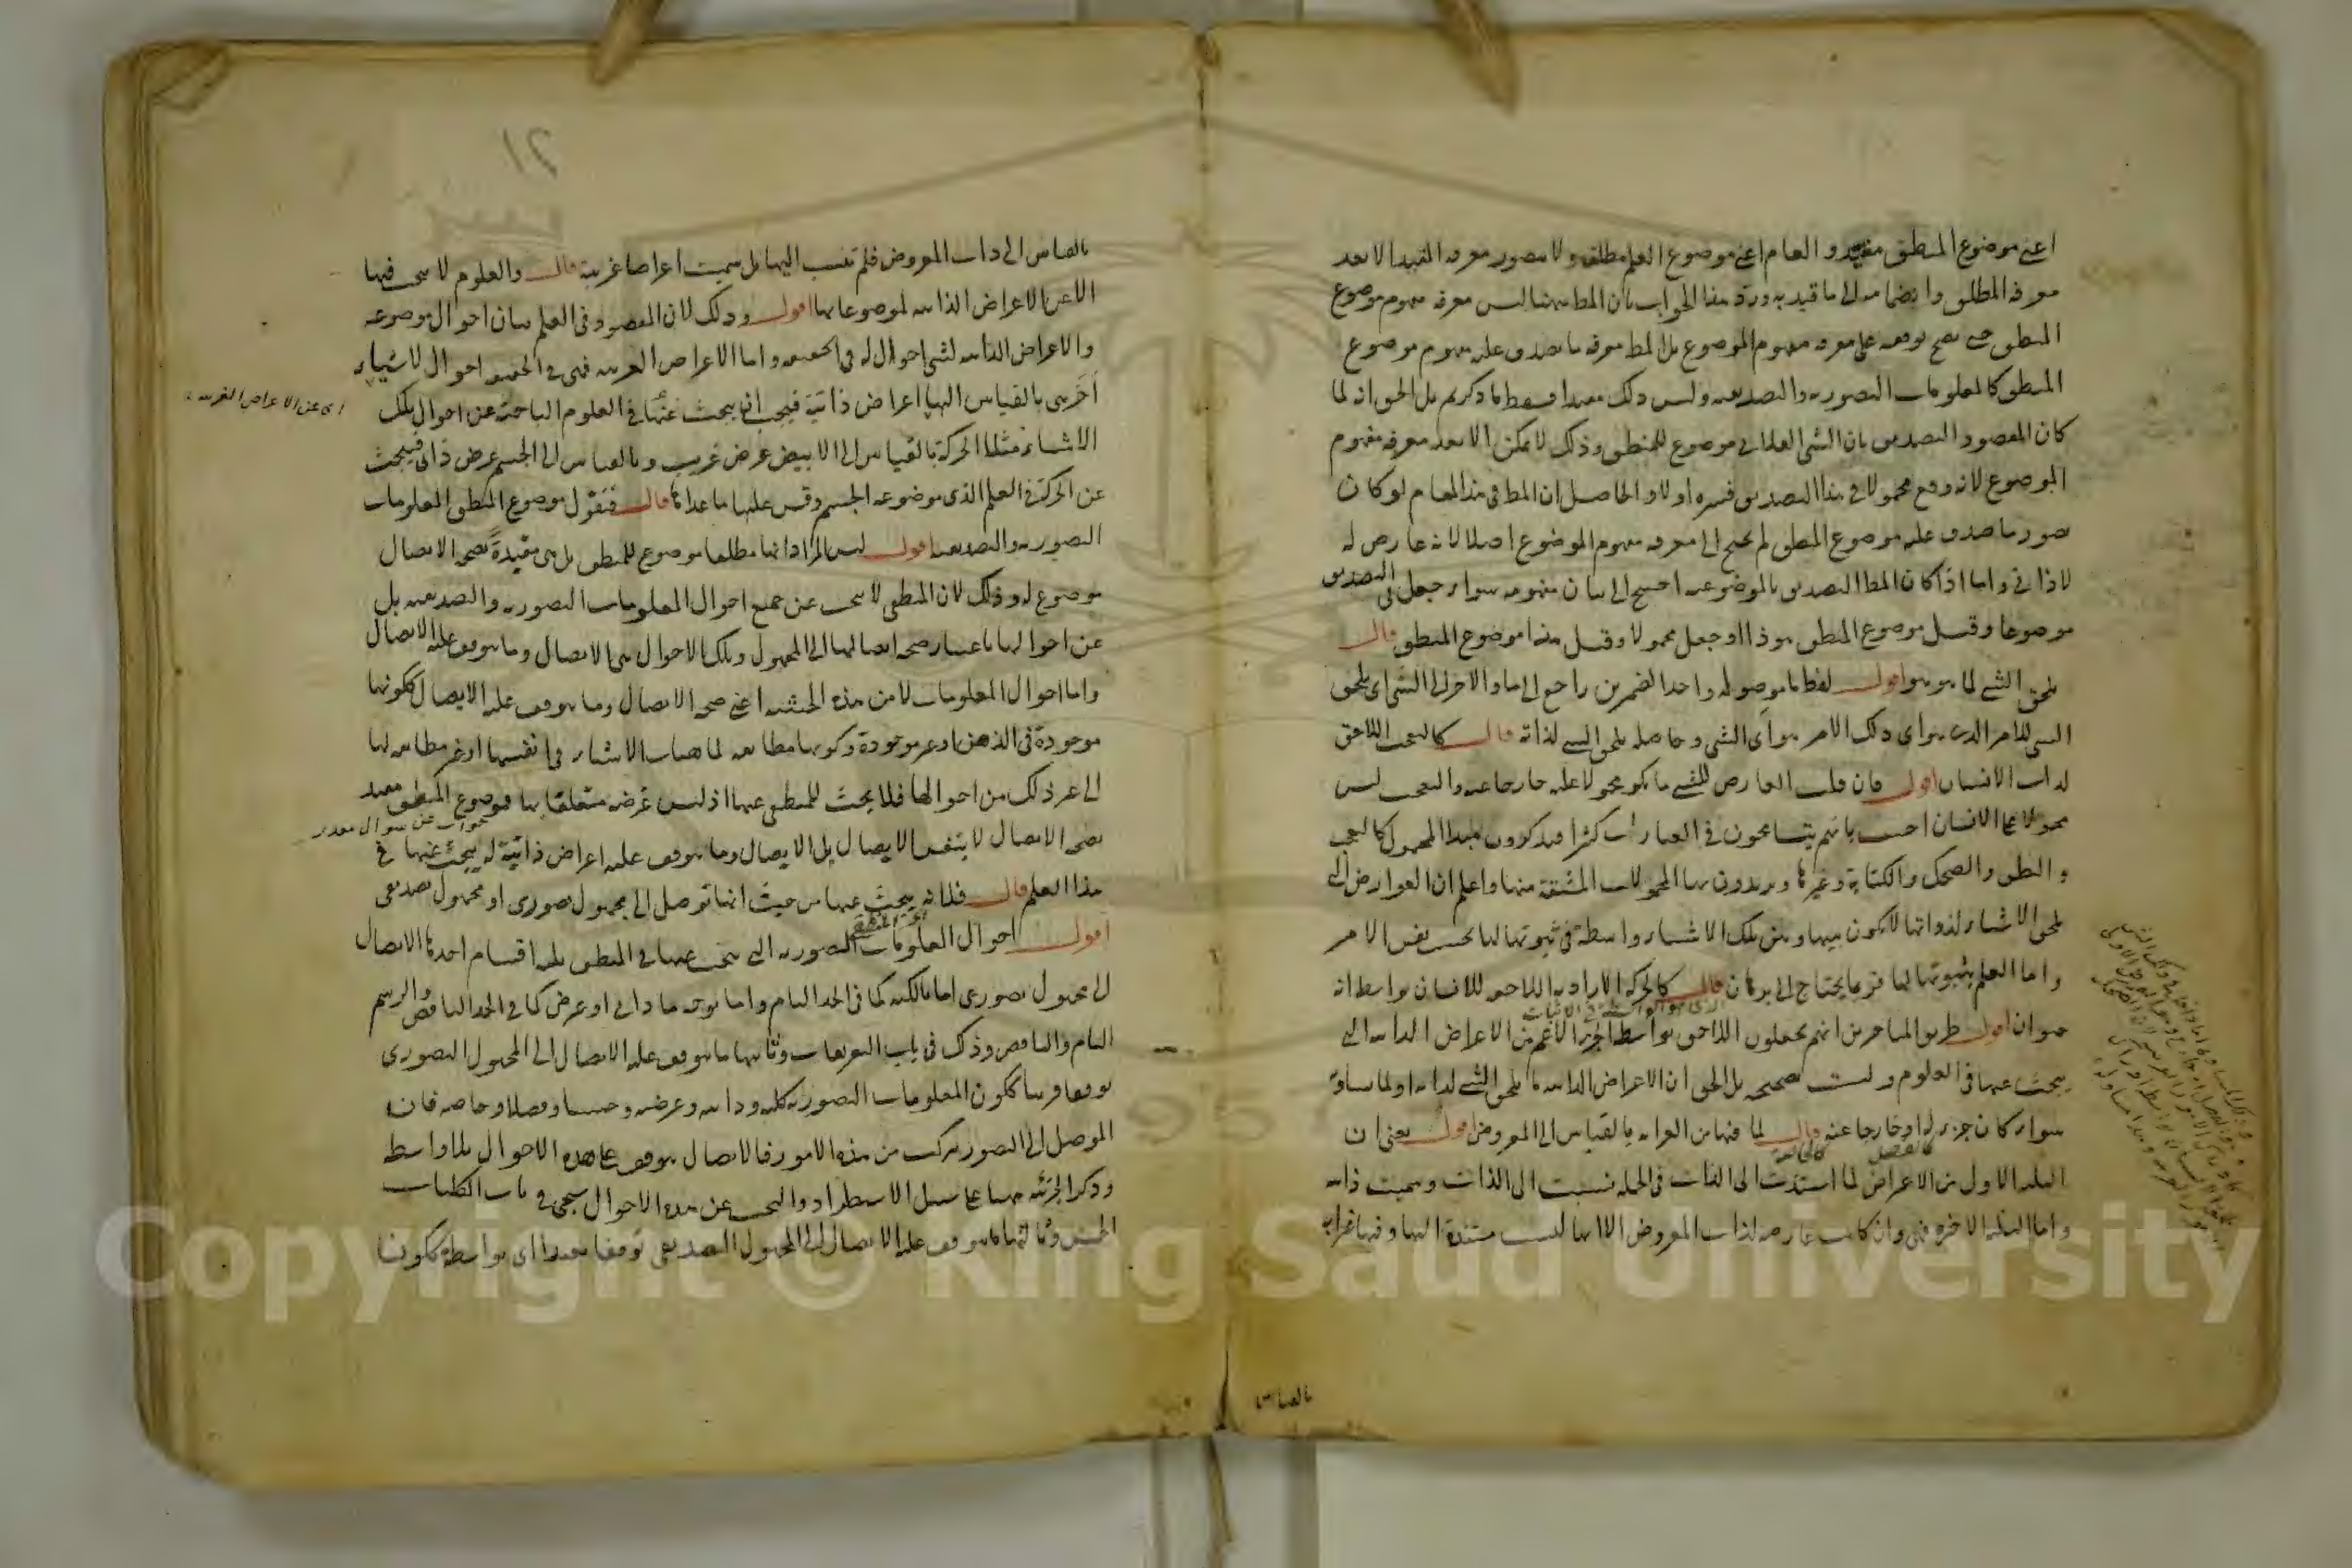 اعنى موضوع المنطق مقيد والعام اعنى موضوع العلم مطلق ولا يتصور معرفة المقيد الا بعد
معرفة المطلق وايضا ما قيد به ورد هذا الجواب بان المط ههنا ليس معرفة مفهوم موضوع
المنطق حتى يصح توقفه على معرفة مفهوم الموضوع بل المط معرفة ما يصدق عليه مفهوم موضوع
المنطق كالمعلومات التصورية والتصديقية وليس ذلك مقيدا فسقط ما ذكرتم بل الحق انه لما
كان المقصود التصديق بان الشى الفلانى موضوع للمنطق وذلك لا يمكن الا بعد معرفة مفهوم
الموضوع لانه وقع محمولا فى هذا التصديق فسره اولا والحاصل ان المط فى هذا المقام لو كان
تصور ما صدق عليه موضوع المنطق لم يحتج الى معرفة مفهوم الموضوع اصلا لانه عارض له
لا ذاتى واما اذا كان المط التصديق بالموضوعية احتيج الى بيان مفهومه سواء جعل فى التصديق
موضوعا وقيل موضوع المنطق هو ذا او جعل محمولا وقيل هذا موضوع المنطق قال
يلحق الشى لما هو هو اقول لفظ ما موصولة واحد الضميرين راجع الى ما والاخر الى الشى اى يلحق
الشى للامر الذى هو اى ذلك الامر هو اى الشى وحاصله يلحق الشى لذاته قال كالتعجب اللاحق
لذات الانسان اقول فان قلت العارض للشى ما يكون محمولا عليه خارجا عنه والتعجب ليس
محمولا على الانسان اجيب بانهم يتسامحون فى العبارات كثيرا فيذكرون مبدا المحمول كالتعجب
والنطق والضحك والكتابة وغيرها ويريدون بها المحمولات المشتقة منها واعلم ان العوارض التى
تلحق الاشياء لذواتها لا يكون بينها وبين تلك الاشياء واسطة فى ثبوتها لها بحسب نفس الامر
واما العلم بثبوتها لها فربما يحتاج الى برهان قال كالحركة الارادية اللاحقة للانسان بواسطة انه
حيوان اقول طريق المتاخرين انهم يجعلون اللاحق بواسطة الجزء الاعم من الاعراض الذاتية التى
يبحث عنها فى العلوم وليست بصحيحه بل الحق ان الاعراض الذاتية ما يلحق الشى لذاته او لما يساويه
سواء كان جزء له او خارجا عنه قال لما فيها من الغرابة بالقياس الى المعروض اقول يعنى ان
الثلثة الاول من الاعراض لما استندت الى الذات فى الجملة نسبت الى الذات وسميت ذاتية
واما الثلثة الاخيرة فهى وان كانت عارضة لذات المعروض الا انها ليست مستندة اليها وفيها غرابة
بالقياس
٢١
بالقياس الى ذات المعروض فلم تنسب اليها بل سميت اعراضا غريبة قال والعلوم لا يبحث فيها
الا عن الاعراض الذاتية لموضوعاتها اقول وذلك لان المقصود فى العلم بيان احوال موضوعه
والاعراض الذاتية لشى احوال له فى الحقيقة واما الاعراض الغريبة فهى فى الحقيقة احوال لاشياء
اخرى بالقياس اليها اعراض ذاتية فيجب ان يبحث عنها فى العلوم الباحثة عن احوال تلك
اى عن الاعراض الغريبة
الاشياء مثلا الحركة بالقياس الى الابيض عرض غريب وبالقياس الى الجسم عرض ذاتى فيبحث
عن الحركة فى العلم الذى موضوعه الجسم وقس عليها ما عداها قال فنقول موضوع المنطق المعلومات
التصورية والتصديقية اقول ليس المراد انها مطلقا موضوع للمنطق بل هى مقيدة بصحة الايصال
موضوع له وذلك لان المنطقى لا يبحث عن جميع احوال المعلومات التصورية والتصديقية بل
عن احوالها باعتبار صحة ايصالها الى المجهول وتلك الاحوال هى الايصال وما يتوقف عليه الايصال
واما احوال المعلومات لا من هذه الحيثية اعنى صحة الايصال وما يتوقف عليه الايصال ككونها
موجودة فى الذهن او غير موجودة وكونها مطابقة لماهيات الاشياء فى انفسها او غير مطابقة لها
الى غير ذلك من احوالها فلا يبحث للمنطقى عنها اذ ليس غرضه متعلقا بها فموضوع المنطق مقيد
جواب عن سوال مقدر
بصحة الايصال لا بنفس الايصال بل الايصال وما يتوقف عليه اعراض ذاتية له يبحث عنها فى
هذا العلم قال فلانه يبحث عنها من حيث انها توصل الى مجهول تصورى او مجهول تصديقى
اقول احوال المعلومات التصورية التى يبحث عنها فى المنطق ثلثة اقسام احدها الايصال
الى مجهول تصورى اما بالكنه كما فى الحد التام واما بوجه ما ذاتى او عرضى كما فى الحد الناقص والرسم
التام والناقص وذلك فى باب التعريفات وثانيها ما يتوقف عليه الايصال الى المجهول التصورى
توقفا قريبا ككون المعلومات التصورية كلية وذاتية وعرضية وجنسا وفصلا وخاصة فان
الموصل الى التصور يتركب من هذه الامور فالايصال يتوقف على هذه الاحوال بلا واسطة
وذكر الجزئية ههنا على سبيل الاستطراد والبحث عن هذه الاحوال سيجى فى باب الكليات
الخمس وثالثها ما يتوقف عليه الايصال الى المجهول التصديقى توقفا بعيدا اى بواسطة ككونها
Copyright © King Saud University